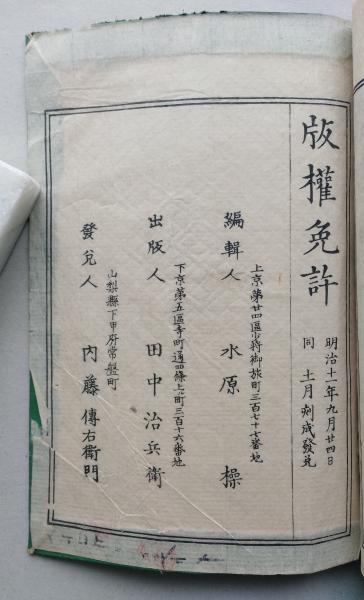 版權免許
明治十一年九月廿四日
同 十一月刻成發兌
上京第廿四區少将御旅町三百七十七番地
編輯人 水原 操
下京第五區寺町通四條上ル町三百十六番地
出版人 田中治兵衛
山梨縣下甲府常盤町
發兌人 内藤傳右衛門